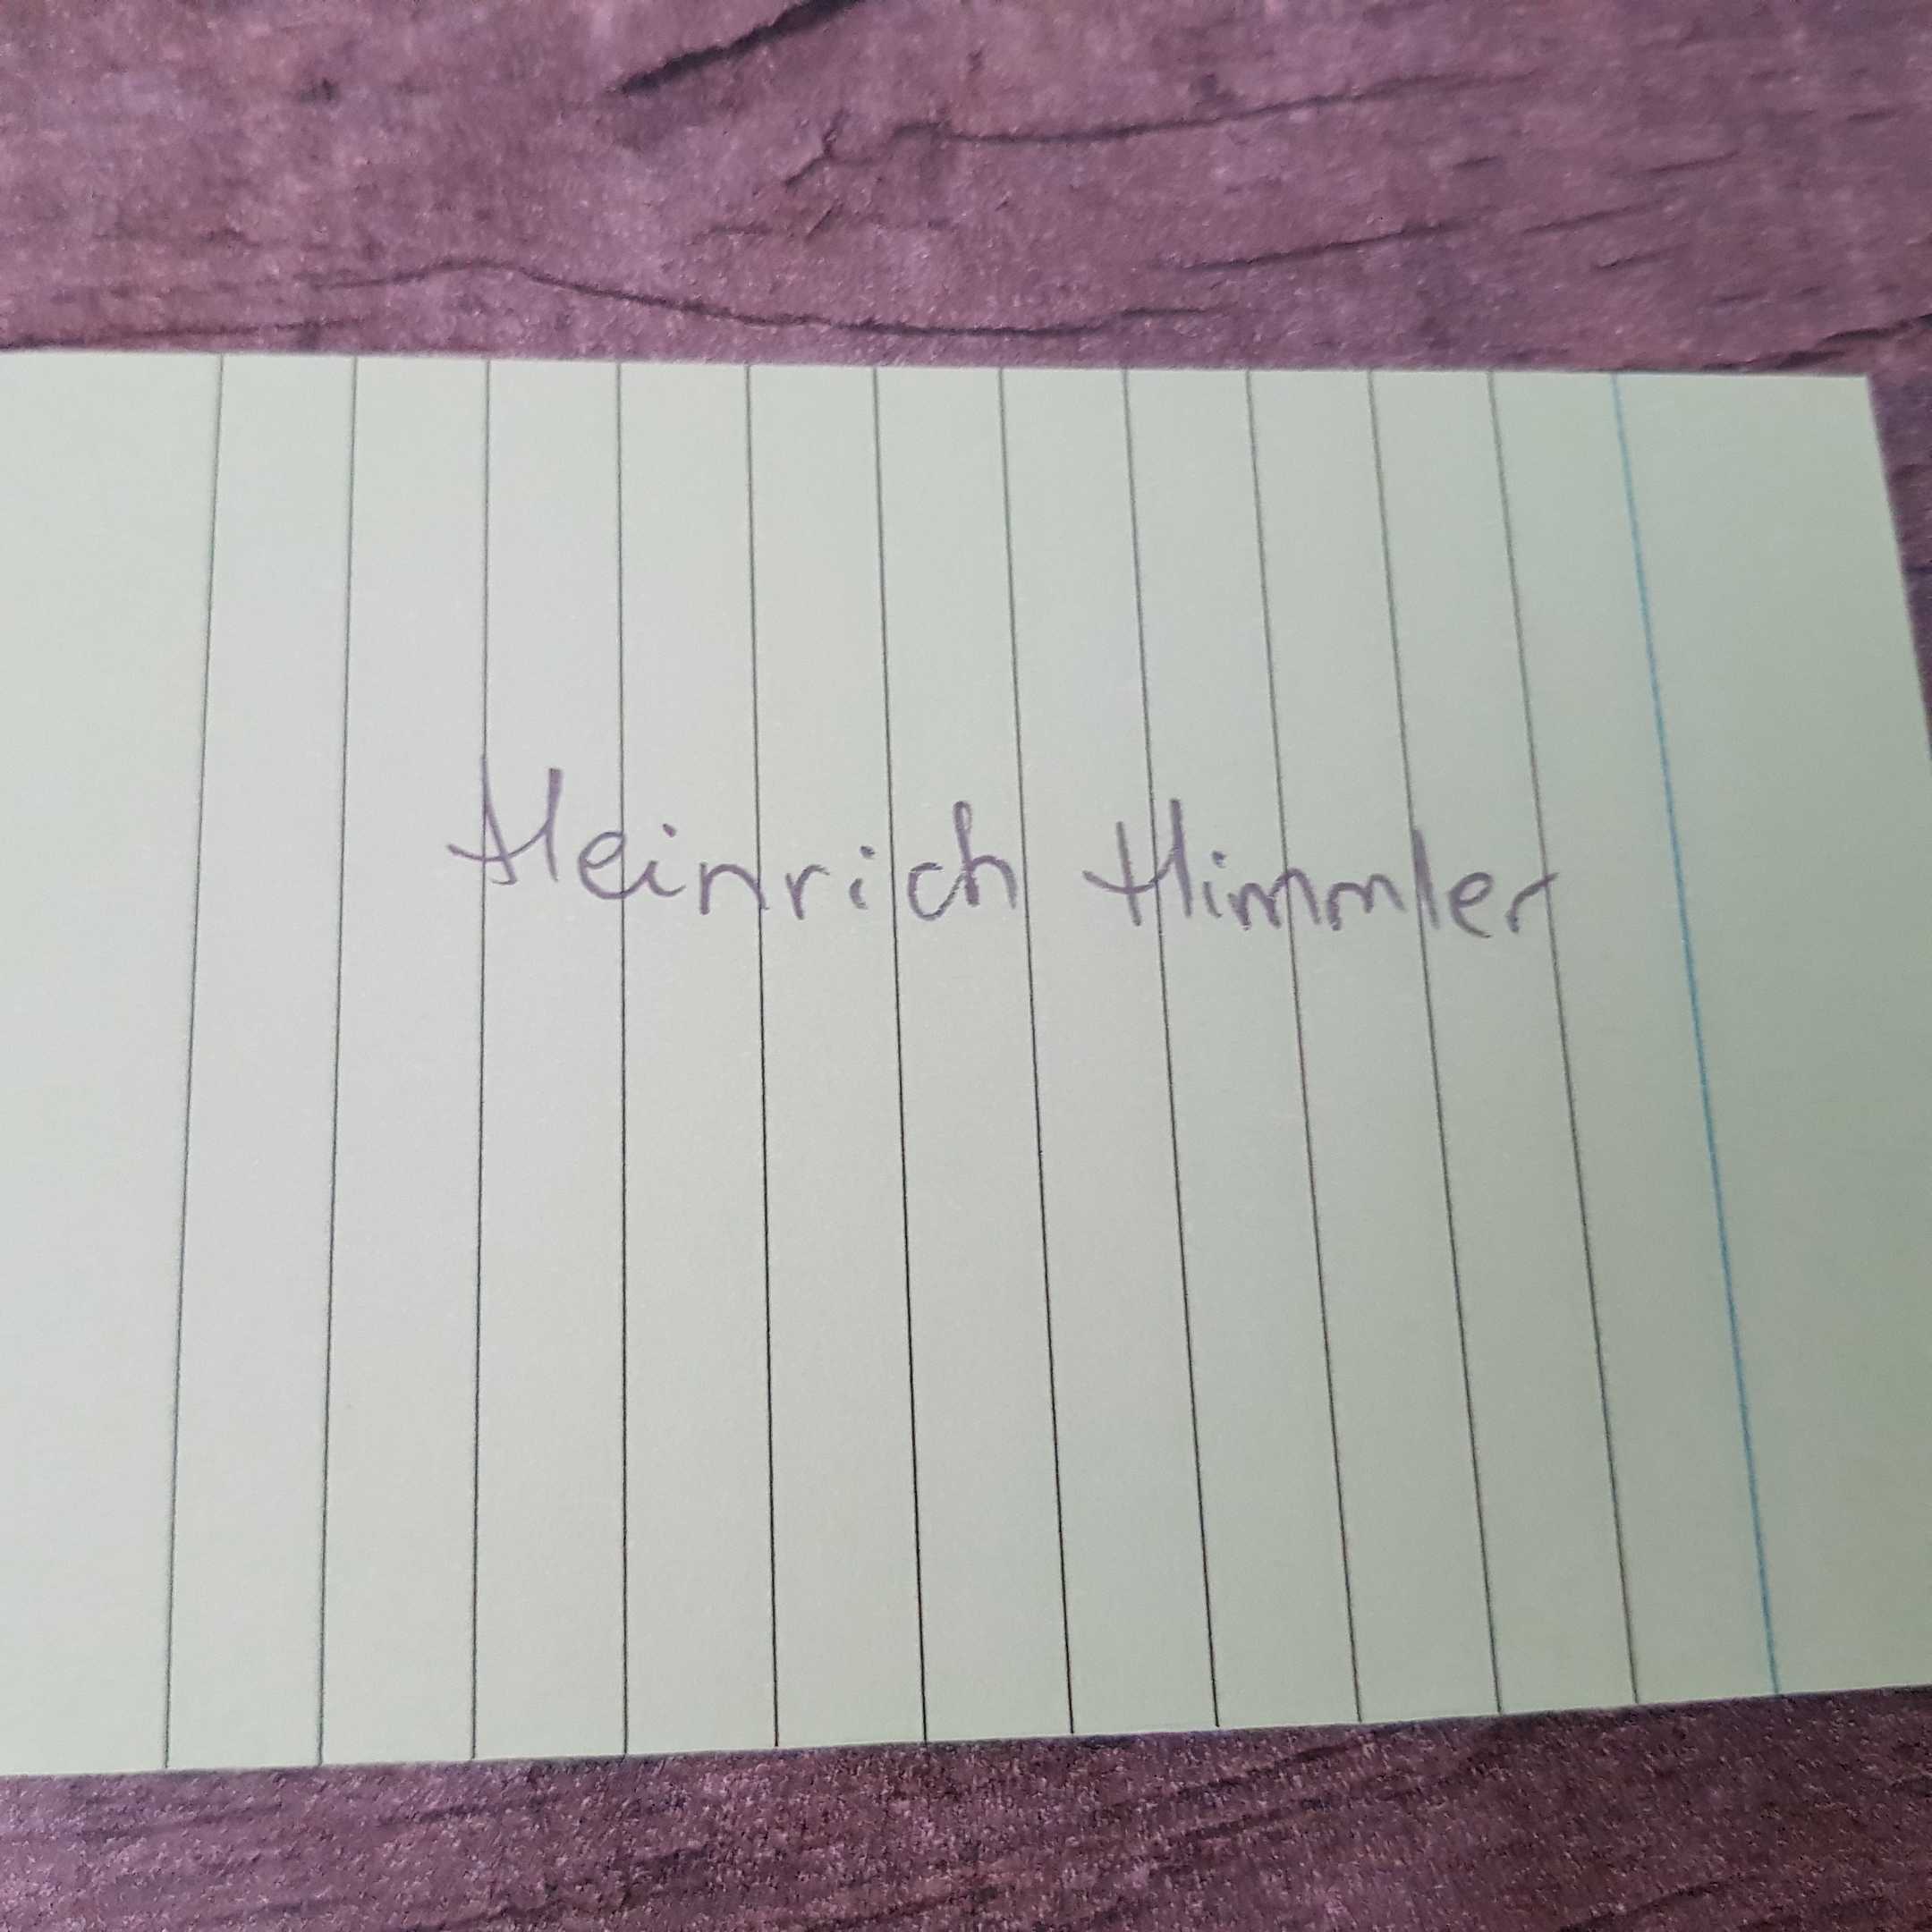 Heinrich Himmler